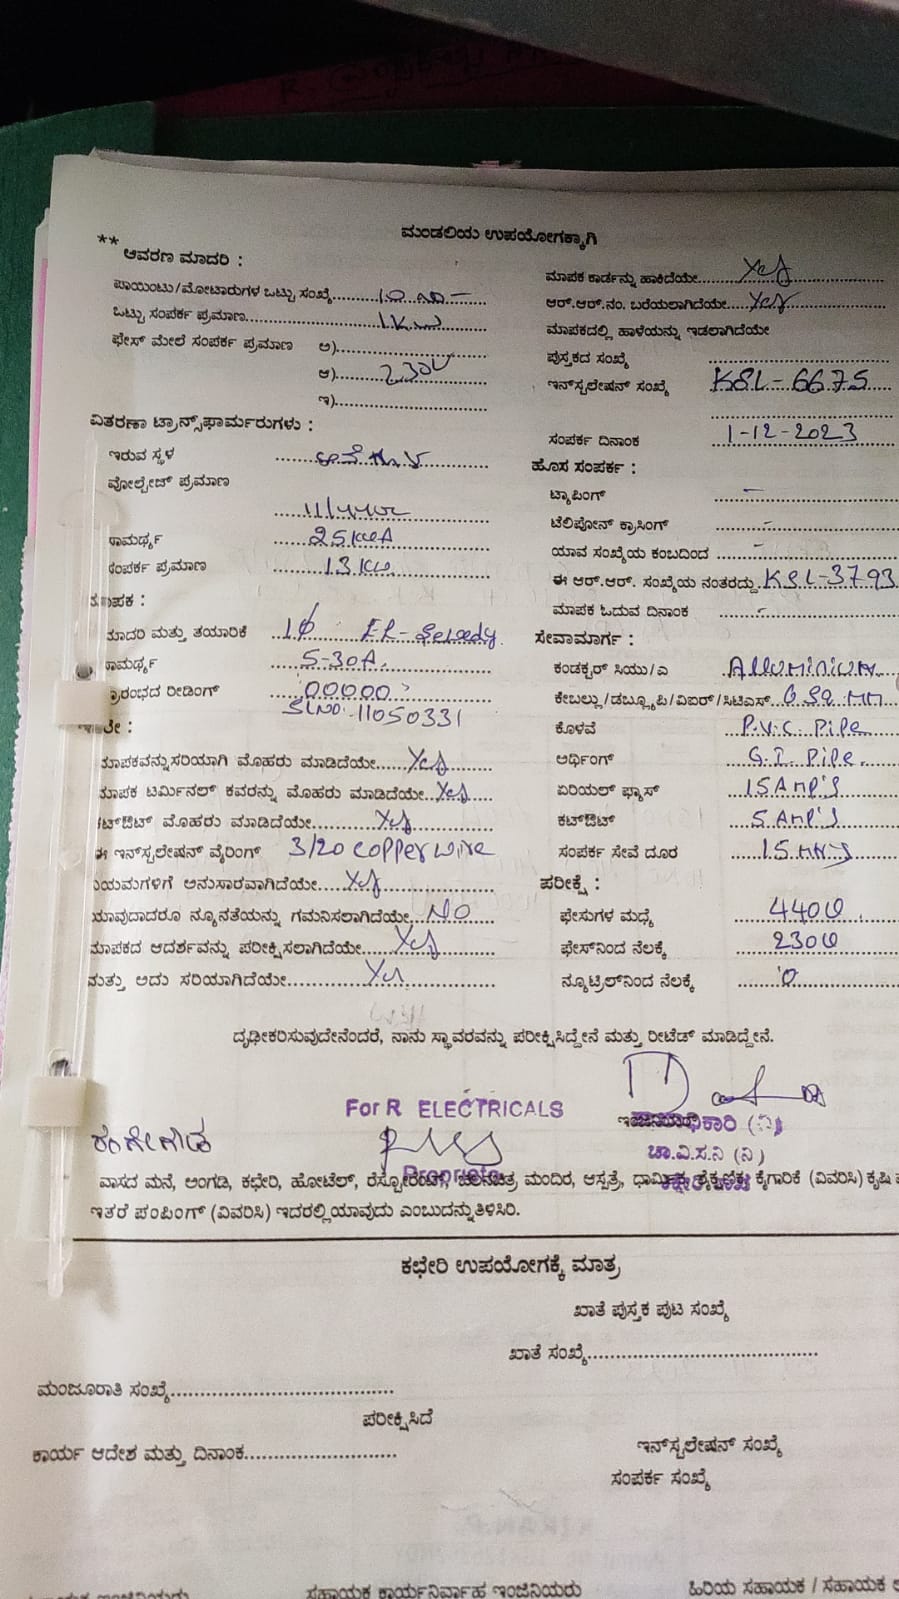 ಮಂಡಲಿಯ ಉಪಯೋಗಕ್ಕಾಗಿ
** ಆವರಣ ಮಾದರಿ :
ಪಾಯಿಂಟು/ಮೋಟಾರುಗಳ ಒಟ್ಟು ಸಂಖ್ಯೆ
ಒಟ್ಟು ಸಂಪರ್ಕ ಪ್ರಮಾಣ 1KW
ಫೇಸ್ ಮೇಲೆ ಸಂಪರ್ಕ ಪ್ರಮಾಣ ಅ)
ಆ) 230V
ಇ)
ವಿತರಣಾ ಟ್ರಾನ್ಸ್‌ಫಾರ್ಮರುಗಳು :
ಇರುವ ಸ್ಥಳ
ವೋಲ್ಟೇಜ್ ಪ್ರಮಾಣ
ಸಾಮರ್ಥ್ಯ 25KVA
ಸಂಪರ್ಕ ಪ್ರಮಾಣ 13KW
ಮಾಪಕ :
ಮಾದರಿ ಮತ್ತು ತಯಾರಿಕೆ 1ϕ
ಸಾಮರ್ಥ್ಯ 5-30A
ಪ್ರಾರಂಭದ ರೀಡಿಂಗ್ 00000
SLNO:-11050331
ಮಾಪಕವನ್ನು ಸರಿಯಾಗಿ ಮೊಹರು ಮಾಡಿದೆಯೇ Yes
ಮಾಪಕ ಟರ್ಮಿನಲ್ ಕವರನ್ನು ಮೊಹರು ಮಾಡಿದೆಯೇ Yes
ಕಟ್‌ಔಟ್ ಮೊಹರು ಮಾಡಿದೆಯೇ Yes
ಈ ಇನ್‌ಸ್ಟಲೇಷನ್ ವೈರಿಂಗ್ 3/20 copper wire
ನಿಯಮಗಳಿಗೆ ಅನುಸಾರವಾಗಿದೆಯೇ Yes
ಯಾವುದಾದರೂ ನ್ಯೂನತೆಯನ್ನು ಗಮನಿಸಲಾಗಿದೆಯೇ NO
ಮಾಪಕದ ಆದರ್ಶವನ್ನು ಪರೀಕ್ಷಿಸಲಾಗಿದೆಯೇ Yes
ಮತ್ತು ಅದು ಸರಿಯಾಗಿದೆಯೇ Yes
ಮಾಪಕ ಕಾರ್ಡನ್ನು ಹಾಕಿದೆಯೇ Yes
ಆರ್.ಆರ್.ನಂ. ಬರೆಯಲಾಗಿದೆಯೇ Yes
ಮಾಪಕದಲ್ಲಿ ಹಾಳೆಯನ್ನು ಇಡಲಾಗಿದೆಯೇ
ಪುಸ್ತಕದ ಸಂಖ್ಯೆ
ಇನ್‌ಸ್ಟಲೇಷನ್ ಸಂಖ್ಯೆ KSL-6675
ಸಂಪರ್ಕ ದಿನಾಂಕ 1-12-2023
ಹೊಸ ಸಂಪರ್ಕ :
ಟ್ಯಾಪಿಂಗ್ -
ಟೆಲಿಫೋನ್ ಕ್ರಾಸಿಂಗ್ -
ಯಾವ ಸಂಖ್ಯೆಯ ಕಂಬದಿಂದ -
ಈ ಆರ್.ಆರ್. ಸಂಖ್ಯೆಯ ನಂತರದ್ದು KSL-3793
ಮಾಪಕ ಓದುವ ದಿನಾಂಕ -
ಸೇವಾಮಾರ್ಗ :
ಕಂಡಕ್ಟರ್ ಸಿಯು/ಎ Alluminium
ಕೇಬಲ್ಲು/ಡಬ್ಲ್ಯೂಪಿ/ವಿಐಆರ್/ಸಿಟಿಎಸ್ 6 SQ.MM
ಕೊಳವೆ P.V.C. Pipe
ಅರ್ಥಿಂಗ್ G.I. Pipe.
ಏರಿಯಲ್ ಫ್ಯೂಸ್ 15 AMP'S
ಕಟ್‌ಔಟ್ 5 AMP'S
ಸಂಪರ್ಕ ಸೇವೆ ದೂರ
ಪರೀಕ್ಷೆ :
ಫೇಸುಗಳ ಮಧ್ಯೆ 440V
ಫೇಸ್‌ನಿಂದ ನೆಲಕ್ಕೆ 230V
ನ್ಯೂಟ್ರಲ್‌ನಿಂದ ನೆಲಕ್ಕೆ 0
ದೃಢೀಕರಿಸುವುದೇನೆಂದರೆ, ನಾನು ಸ್ಥಾವರವನ್ನು ಪರೀಕ್ಷಿಸಿದ್ದೇನೆ ಮತ್ತು ರೀಟೆಡ್ ಮಾಡಿದ್ದೇನೆ.
For R ELECTRICALS
ಚಾ.ವಿ.ಸ.ನಿ (ನಿ)
ವಾಸದ ಮನೆ, ಅಂಗಡಿ, ಕಛೇರಿ, ಹೋಟೆಲ್, ರೆಸ್ಟೋರೆಂಟ್, ಚಲನಚಿತ್ರ ಮಂದಿರ, ಆಸ್ಪತ್ರೆ, ಧಾರ್ಮಿಕ, ಶೈಕ್ಷಣಿಕ, ಕೈಗಾರಿಕೆ (ವಿವರಿಸಿ) ಕೃಷಿ
ಇತರೆ ಪಂಪಿಂಗ್ (ವಿವರಿಸಿ) ಇದರಲ್ಲಿ ಯಾವುದು ಎಂಬುದನ್ನು ತಿಳಿಸಿರಿ.
ಕಛೇರಿ ಉಪಯೋಗಕ್ಕೆ ಮಾತ್ರ
ಖಾತೆ ಪುಸ್ತಕ ಪುಟ ಸಂಖ್ಯೆ
ಖಾತೆ ಸಂಖ್ಯೆ
ಮಂಜೂರಾತಿ ಸಂಖ್ಯೆ
ಪರೀಕ್ಷಿಸಿದೆ
ಕಾರ್ಯ ಆದೇಶ ಮತ್ತು ದಿನಾಂಕ
ಇನ್‌ಸ್ಟಲೇಷನ್ ಸಂಖ್ಯೆ
ಸಂಪರ್ಕ ಸಂಖ್ಯೆ
ಸಹಾಯಕ ಕಾರ್ಯನಿರ್ವಾಹ ಇಂಜಿನಿಯರು
ಹಿರಿಯ ಸಹಾಯಕ / ಸಹಾಯಕ